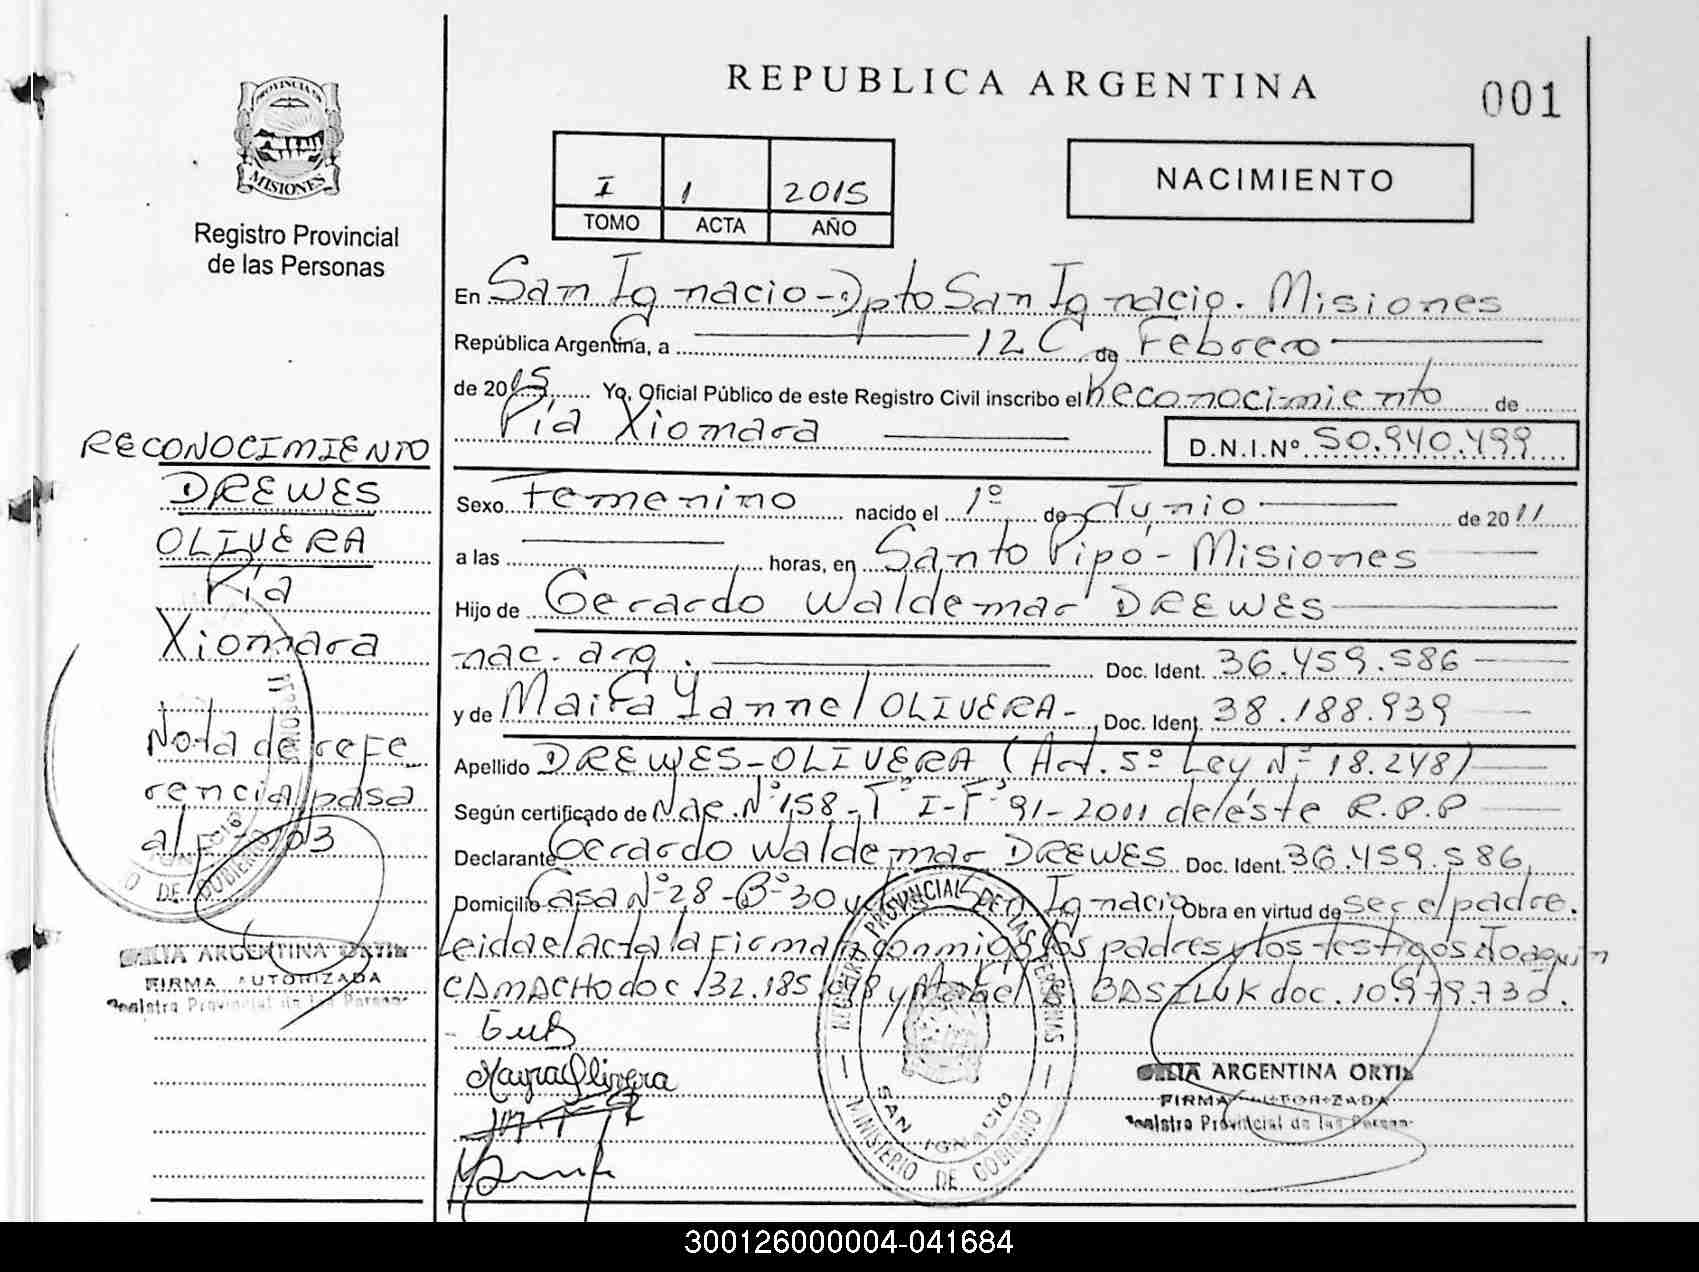 REPUBLICA ARGENTINA
001
PROVINCIA DE
MISIONES
Registro Provincial
de las Personas
I 1 2015
TOMO ACTA AÑO
NACIMIENTO
En San Ignacio - Dpto San Ignacio. Misiones
República Argentina, a 12 de Febrero
de 2015, Yo, Oficial Público de este Registro Civil inscribo el Reconocimiento de
Pía Xiomara D.N.I.Nº 50.940.499
Sexo Femenino nacido el 1º de Junio de 2011
a las horas, en Santo Pipó - Misiones
Hijo de Gerardo Waldemar DREWES
nac. arg. Doc. Ident. 36.459.586
y de Yannel OLIVERA - Doc. Ident. 38.188.939
Apellido DREWES-OLIVERA (Art. 5º Ley Nº 18.248)
Según certificado de Nac. Nº 158 - Tº I - Fº 91 - 2011 de éste R.P.P
Declarante Gerardo Waldemar DREWES Doc. Ident. 36.459.586
Domicilio Casa Nº 28 - Bº 30 San Ignacio Obra en virtud de ser el padre.
Leida el acta la firman conmigo los padres y los testigos Joaquin
CAMACHO doc 32.185.698 y BASZLUK doc. 10.979.730.
RECONOCIMIENTO
DREWES
OLIVERA
Pía
Xiomara
Nota de refe
rencia pasa
al Fº 103
DE GOBIERNO
ARGENTINA ORTIZ
FIRMA AUTORIZADA
Registro Provincial de las Personas
Mayra Olivera
REGISTRO PROVINCIAL DE LAS PERSONAS
SAN IGNACIO
MINISTERIO DE GOBIERNO
ARGENTINA ORTIZ
FIRMA AUTORIZADA
Registro Provincial de las Personas
300126000004-041684